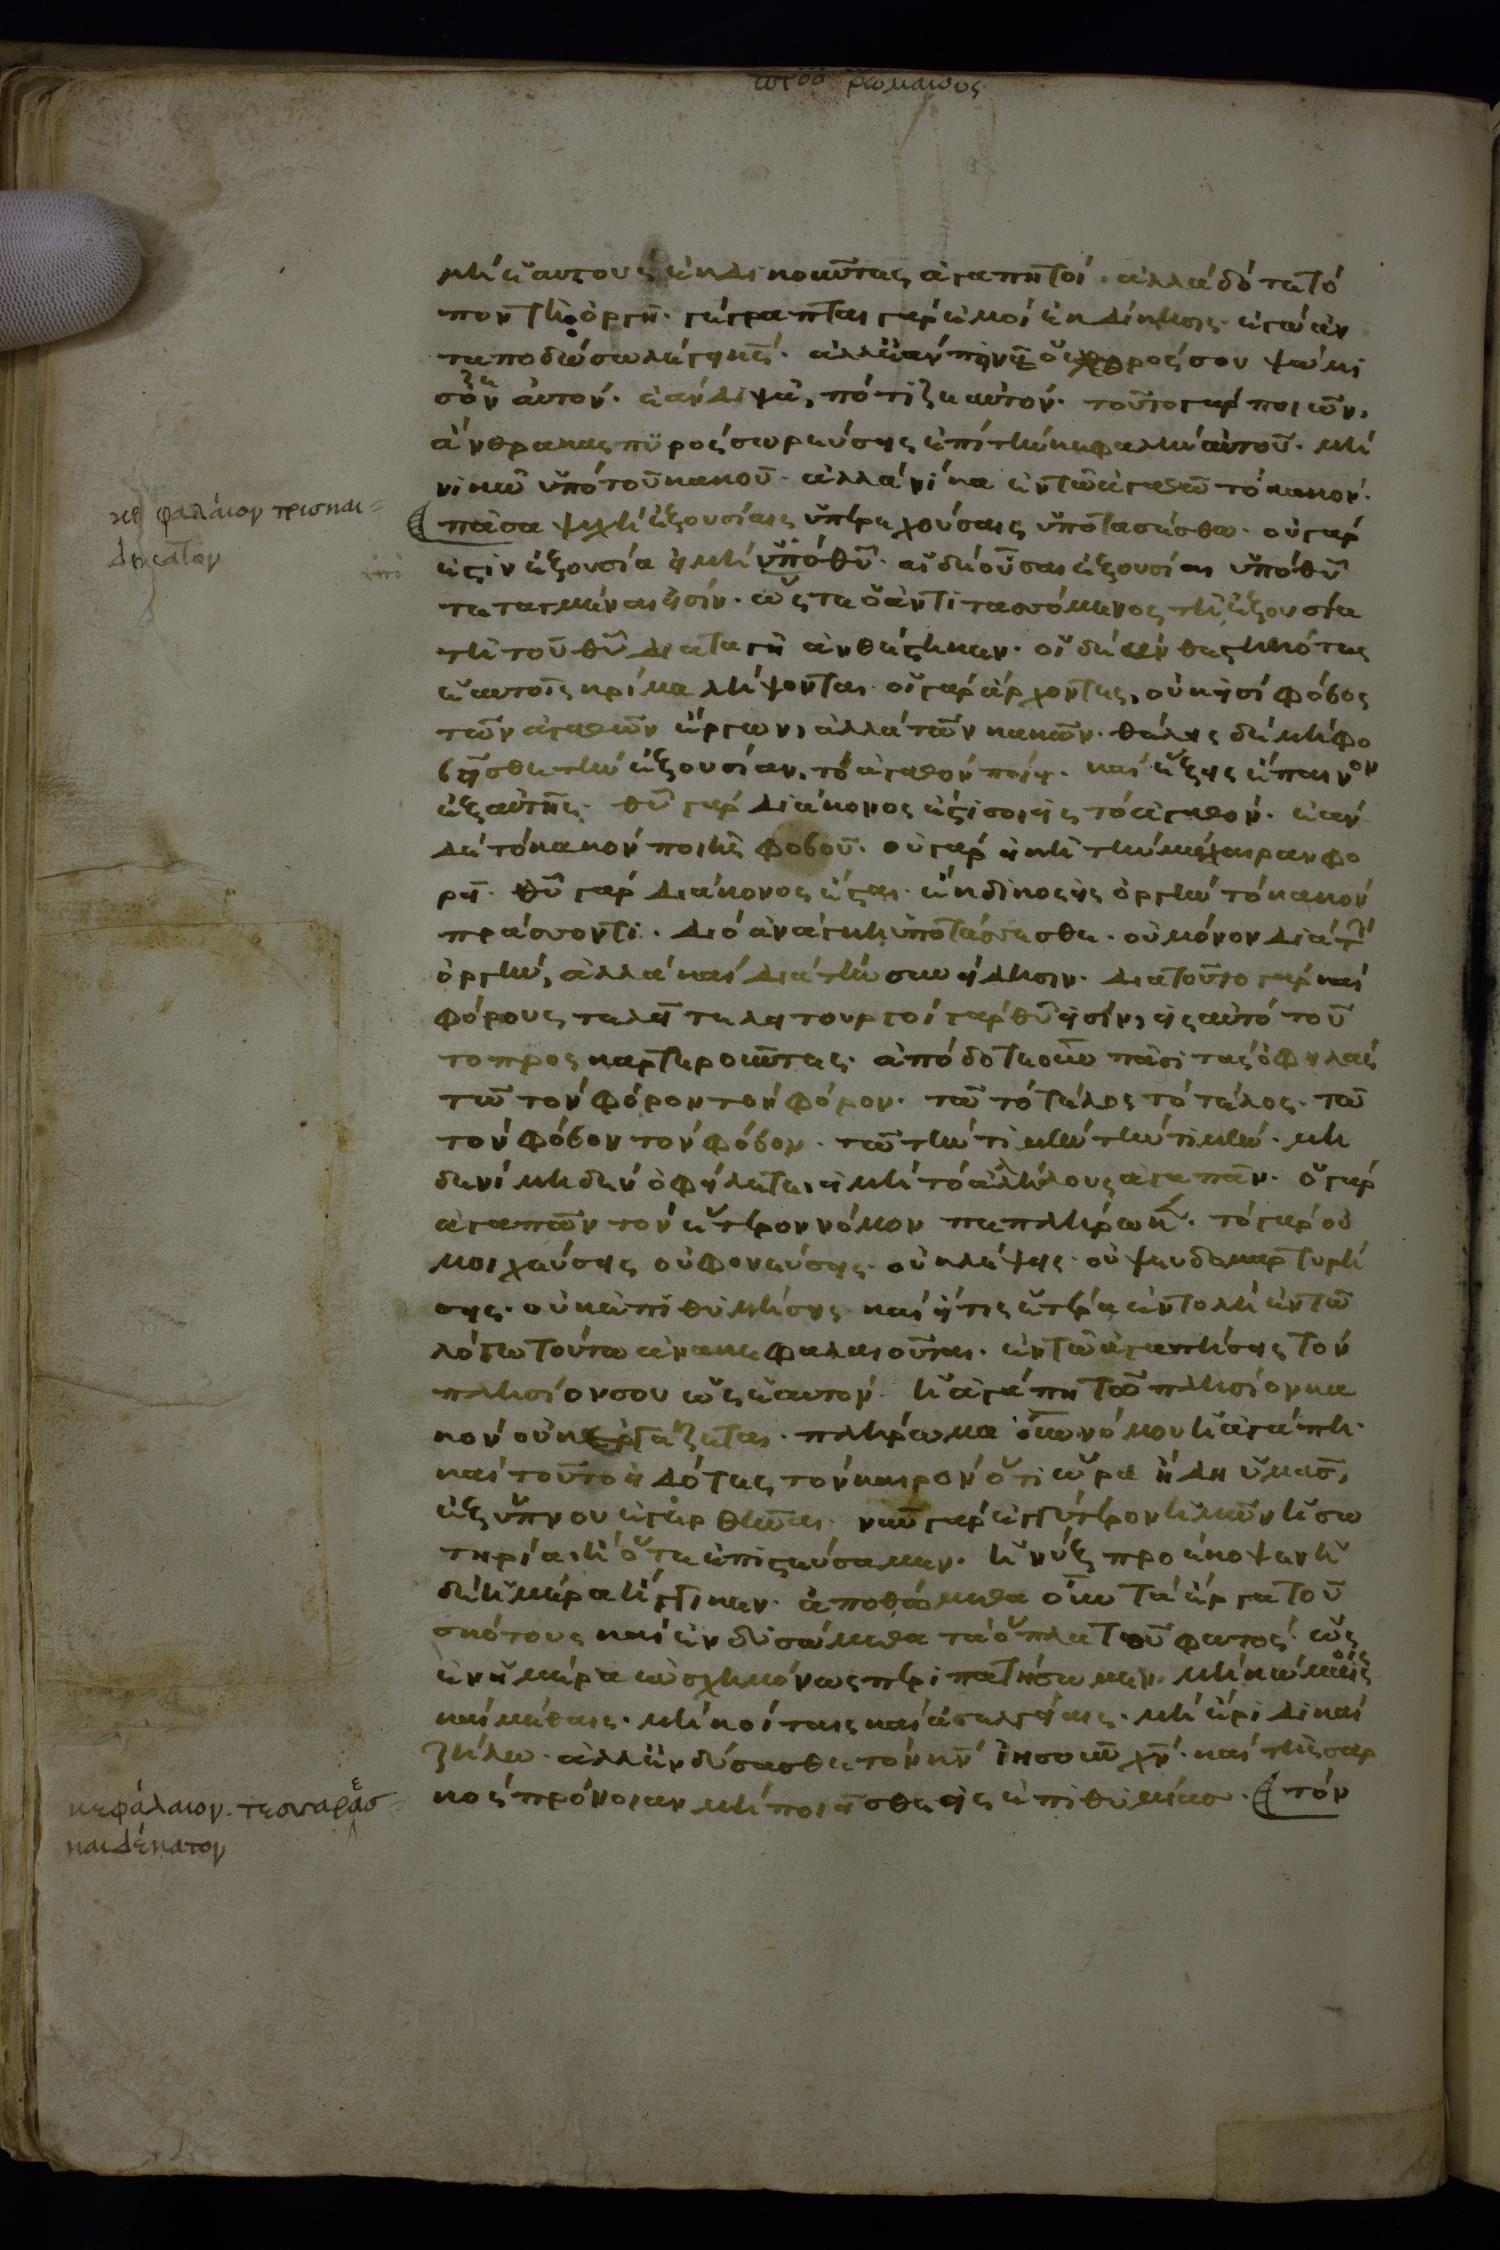 πρὸσ ῥωμαίους
μὴ ἑαυτοὺς ἐκδικοῦντες ἀγαπητοί· ἀλλὰ δότε τό
πον τῆ ὀργῆ· γέγραπται γὰρ ἐμοὶ ἐκδίκησις· ἐγὼ ἀν
ταποδώσω λέγει κς̄· ἀλλ' ἐὰν πεινᾷ ὁ ἐχθρός σου ψώμι
ζε αὐτόν· ἐὰν διψᾷ, πότιζε αὐτόν· τοῦτο γὰρ ποιῶν,
ἄνθρακας πυρὸς σωρεύσεις ἐπὶ τὴν κεφαλὴν αὐτοῦ· μὴ
νικῶ ὑπὸ τοῦ κακοῦ· ἀλλὰ νίκα ἐν τῶ ἀγαθῶ τὸ κακόν·
κεφάλαιον τρισκαι=
δέκατον
πᾶσα ψυχὴ ἐξουσίαις ὑπερεχούσαις ὑποτασέσθω· οὐ γάρ
ἐστιν ἐξουσία εἰ μὴ ὑπὸ θῦ· αἱ δὲ οὖσαι ἐξουσίαι ὑπὸ θῦ
ἀπὸ
τεταγμέναι εἰσίν· ὥστε ὁ ἀντιτασσόμενος τῆ ἐξουσία
τῆ τοῦ θῦ διαταγῆ ἀνθέστηκεν· οἱ δὲ ἀνθεστηκότες
ἑαυτοῖς κρίμα λήψονται· οἱ γὰρ ἄρχοντες, οὐκ εἰσὶ φόβος
τῶν ἀγαθῶν ἔργων, ἀλλὰ τῶν κακῶν· θέλεις δὲ μὴ φο
βεῖσθαι τὴν ἐξουσίαν, τὸ ἀγαθὸν ποίει· καὶ ἕξεις ἔπαινον
ἐξ αὐτῆς· θῦ γὰρ διάκονος ἐστί σοι εἰς τὸ ἀγαθόν· ἐὰν
δὲ τὸ κακὸν ποιῆς φοβοῦ· οὐ γὰρ εἰκῆ τὴν μάχαιραν φο
ρεῖ· θῦ γὰρ διάκονος ἐστὶν ἔκδικος εἰς ὀργὴν τὸ κακὸν
πράσσοντι· διὸ ἀνάγκη ὑποτάσσεσθαι· οὐ μόνον διὰ τὴν
ὀργὴν, ἀλλὰ καὶ διὰ τὴν συνείδησιν· διὰ τοῦτο γὰρ καὶ
φόρους τελεῖτε λειτουργοὶ γὰρ θῦ εἰσίν, εἰς αὐτὸ τοῦ
το προσκαρτεροῦντες· ἀπόδοτε οὖν πᾶσι τὰς ὀφειλάς
τῶ τὸν φόρον τὸν φόρον· τῶ τὸ τέλος τὸ τέλος· τῶ
τὸν φόβον τὸν φόβον· τῶ τὴν τιμὴν τὴν τιμήν· μη
δενὶ μηδὲν ὀφείλετε, εἰ μὴ τὸ ἀλλήλους ἀγαπᾶν· ὁ γὰρ
ἀγαπῶν τὸν ἕτερον νόμον πεπλήρωκε· τὸ γὰρ οὐ
μοιχεύσεις οὐ φονεύσεις· οὐ κλέψεις· οὐ ψευδομαρτυρή
σεις· οὐκ ἐπιθυμήσεις καὶ εἴ τις ἑτέρα ἐντολὴ ἐν τῶ
λόγω τούτω ἀνακεφαλαιοῦται· ἐν τῶ ἀγαπήσεις τὸν
πλησίον σου ὡς ἑαυτόν· ἡ ἀγάπη τῶ πλησίον κα
κὸν οὐκ ἐργάζεται· πλήρωμα οὖν νόμου ἡ ἀγάπη·
καὶ τοῦτο εἰδότες τὸν καιρὸν ὅτι ὥρα ἤδη ὑμᾶσ,
ἐξ ὕπνου ἐγερθῆναι· νῦν γὰρ ἐγγύτερον ἡμῶν ἡ σω
τηρία, ἢ ὅτε ἐπιστεύσαμεν· ἡ νὺξ προέκοψεν ἡ
δὲ ἡμέρα ἤγγικεν· ἀποθώμεθα οὖν τὰ ἔργα τοῦ
σκότους καὶ ἐνδυσώμεθα τὰ ὅπλα τοῦ φωτός· ὡς
ἐν ἡμέρα εὐσχημόνως περιπατήσωμεν· μὴ κώμοις
καὶ μέθαις· μὴ κοίταις καὶ ἀσελγείαις· μὴ ἔριδι καὶ
ζήλω· ἀλλ' ἐνδύσασθε τὸν κν̄ ἰησοῦν χν̄· καὶ τῆς σαρ
κὸς πρόνοιαν μὴ ποιεῖσθε εἰς ἐπιθυμίασ· τὸν
κεφάλαιον τεσσαρεσ=
καιδέκατον